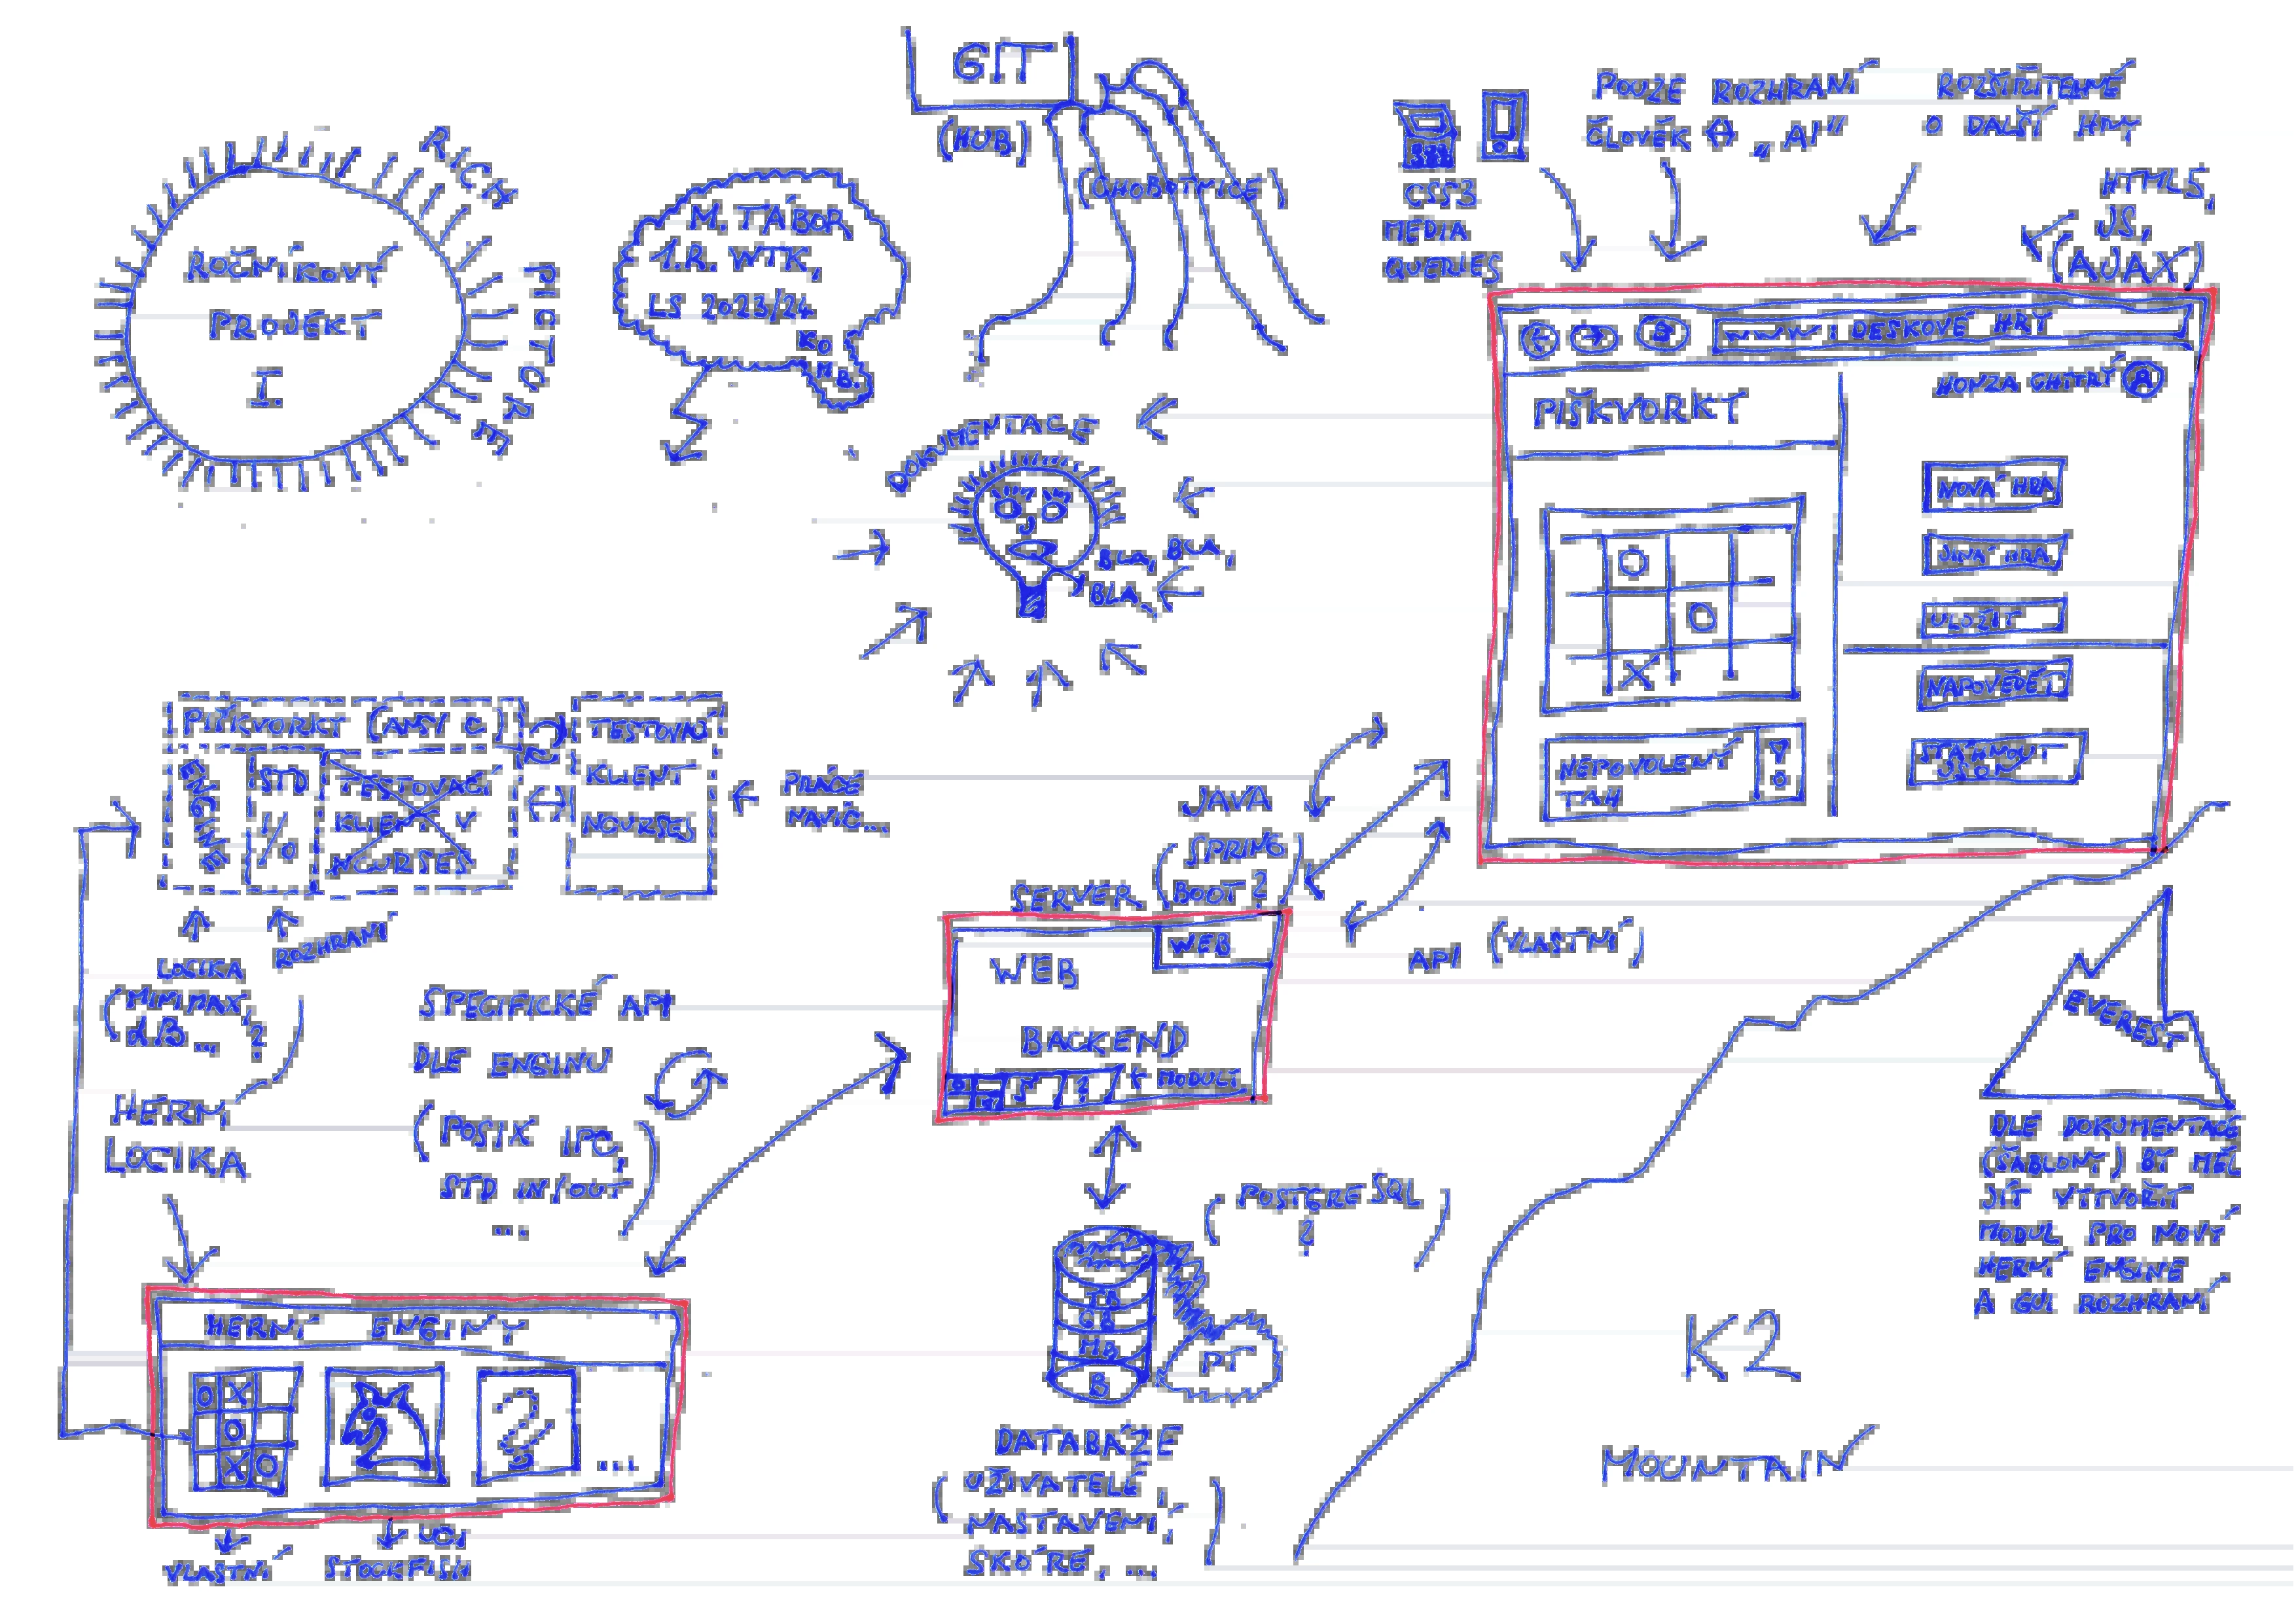 ROČNÍKOVÝ
PROJEKT
I.
RICH
PICTURE
M. TÁBOR
1.R. WTK,
LS 2023/24
KO
MB.
GIT
(HUB)
(CHOBOTNICE)
DOKUMENTACE
BLA, BLA,
BLA
CSS3
MEDIA
QUERIES
POUZE ROZHRANÍ
ČLOVĚK ↔ „AI“
ROZŠIŘITELNÉ
O DALŠÍ HRY
HTML5,
JS,
(AJAX)
DESKOVÉ HRY
PIŠKVORKY
HONZA CHYTRÝ
NOVÁ HRA
JINÁ HRA
ULOŽIT
NÁPOVĚDĚT
STÁHNOUT
NEPOVOLENÝ
TAH
PIŠKVORKY (ANSY C)
ENGINE
STD
I/O
TESTOVACÍ
KLIENT V
NCURSES
TESTOVACÍ
KLIENT
NCURSES
PRÁCE
NAVÍC...
LOGIKA
ROZHRANÍ
(MINIMAX,
αB ... ?)
HERNÍ
LOGIKA
SPECIFICKÉ API
DLE ENGINU
(POSIX IPC,
STD IN/OUT
...)
JAVA
(SPRING
BOOT ?)
SERVER
WEB
WEB
BACKEND
? ← MODULY
API (VLASTNÍ)
(POSTGRESQL
?)
TB
GB
MB
B
PT
DATABÁZE
(UŽIVATELÉ,
NASTAVENÍ,
SKÓRE, ...)
HERNÍ ENGINY
O X
O
X O
?
...
VLASTNÍ
UCI
STOCKFISH
EVEREST
DLE DOKUMENTACE
(ŠABLONY) BY MĚL
JÍT VYTVOŘIT
MODUL PRO NOVÝ
HERNÍ ENGINE
A GUI ROZHRANÍ
K2
MOUNTAIN